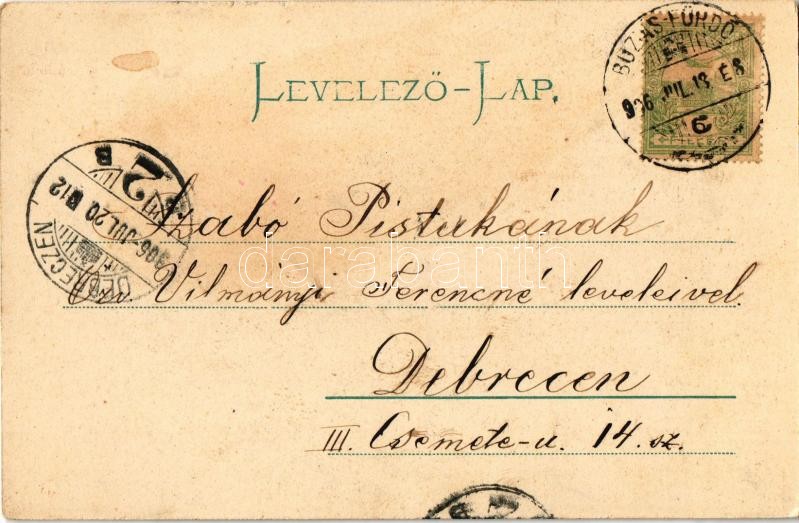 LEVELEZŐ-LAP.
BUZIÁS-FÜRDŐ
906 JUL. 18. É8
6
2
B
906 JUL. 20 N12
DEBRECZEN
Szabó Pistukának
Özv. Vilmányi Ferencné leveleivel.
darabanth
Debrecen
III. Csemete-u. 14. sz.